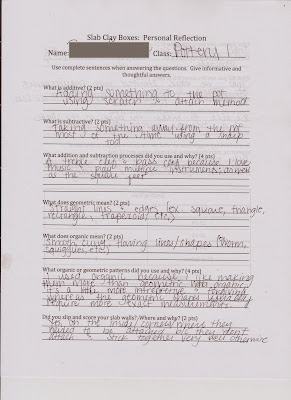 Slab Clay Boxes: Personal Reflection
Name: Class: Pottery 1
Use complete sentences when answering the questions. Give informative and
thoughtful answers.
What is additive? (2 pts)
Adding something to the pot
using scratch & attach method
What is subtractive? (2 pts)
Taking something away from the pot
most of the time using a sharp
tool
What addition and subtraction processes did you use and why? (4 pts)
A treble clef & bass clef because I love
music & play multiple instruments; as well
as the square feet
What does geometric mean? (2 pts)
Straight lines & edges (ex. square, triangle,
rectangle, trapezoid, etc.)
What does organic mean? (2 pts)
Smooth curvy flowing lines/shapes (worm,
squiggles, etc)
What organic or geometric patterns did you use and why? (4 pts)
I used organic because I like making
them more than geometric and organic
it's a little more &
whereas the geometric shapes usually
require more exact measurements.
Did you slip and score your slab walls? Where and why? (2 pts)
Yes, on the inside/corners/where they
needed to be attached b/c they don't
attach & stick together very well otherwise